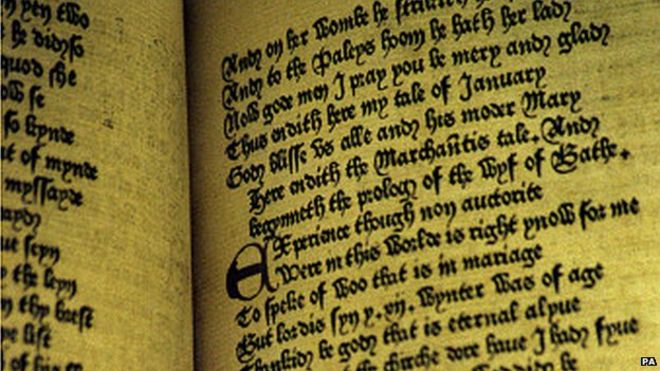 n yen two
t he didyso
quod she
ow se
so kynde
ut of mynde
myssayde
aydy
ue seyn
y the leyn
n thy brest
ue list
d of his
Andy on her wombe he
Andy to the Paleys hoom he hath her lady
Now gode men I pray you be mery andy glady
Thus endith here my tale of January
Gody blisse vs alle andy his moder Mary
Here endith the Marchantis tale. Andy
begynneth the prolog of the Wyf of Bathe.
Experience though non auctorite
Were in this worlde is right ynow for me
To speke of woo that is in mariage
But lordis syn y. xij. wynter was of age
Thankidy be gody that is eternal alyue
at the chirche dore haue I hady fyue
be
PA